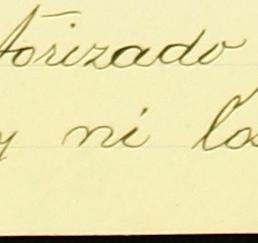 torizado
y ni los